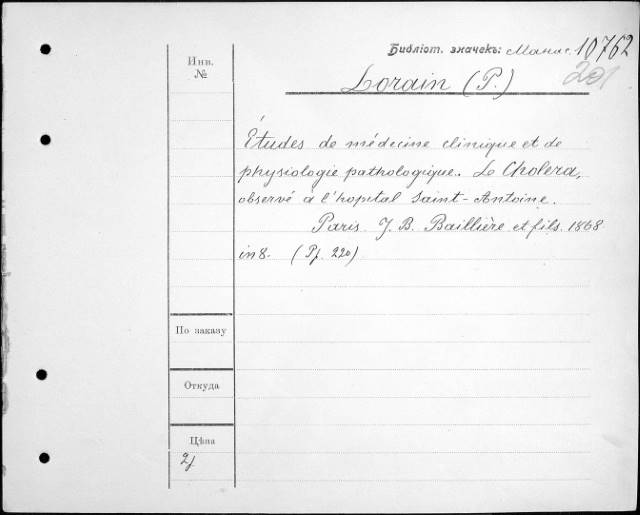 Библіот. значекъ: Манас. 10762
201
Инв.
№
Lorain (P.)
Études de médecine clinique et de
physiologie pathologique. Le Cholera,
observé à l'hopital Saint-Antoine.
Paris. J. B. Baillière et fils. 1868
in 8. (Pf. 220)
По заказу
Откуда
Цѣна